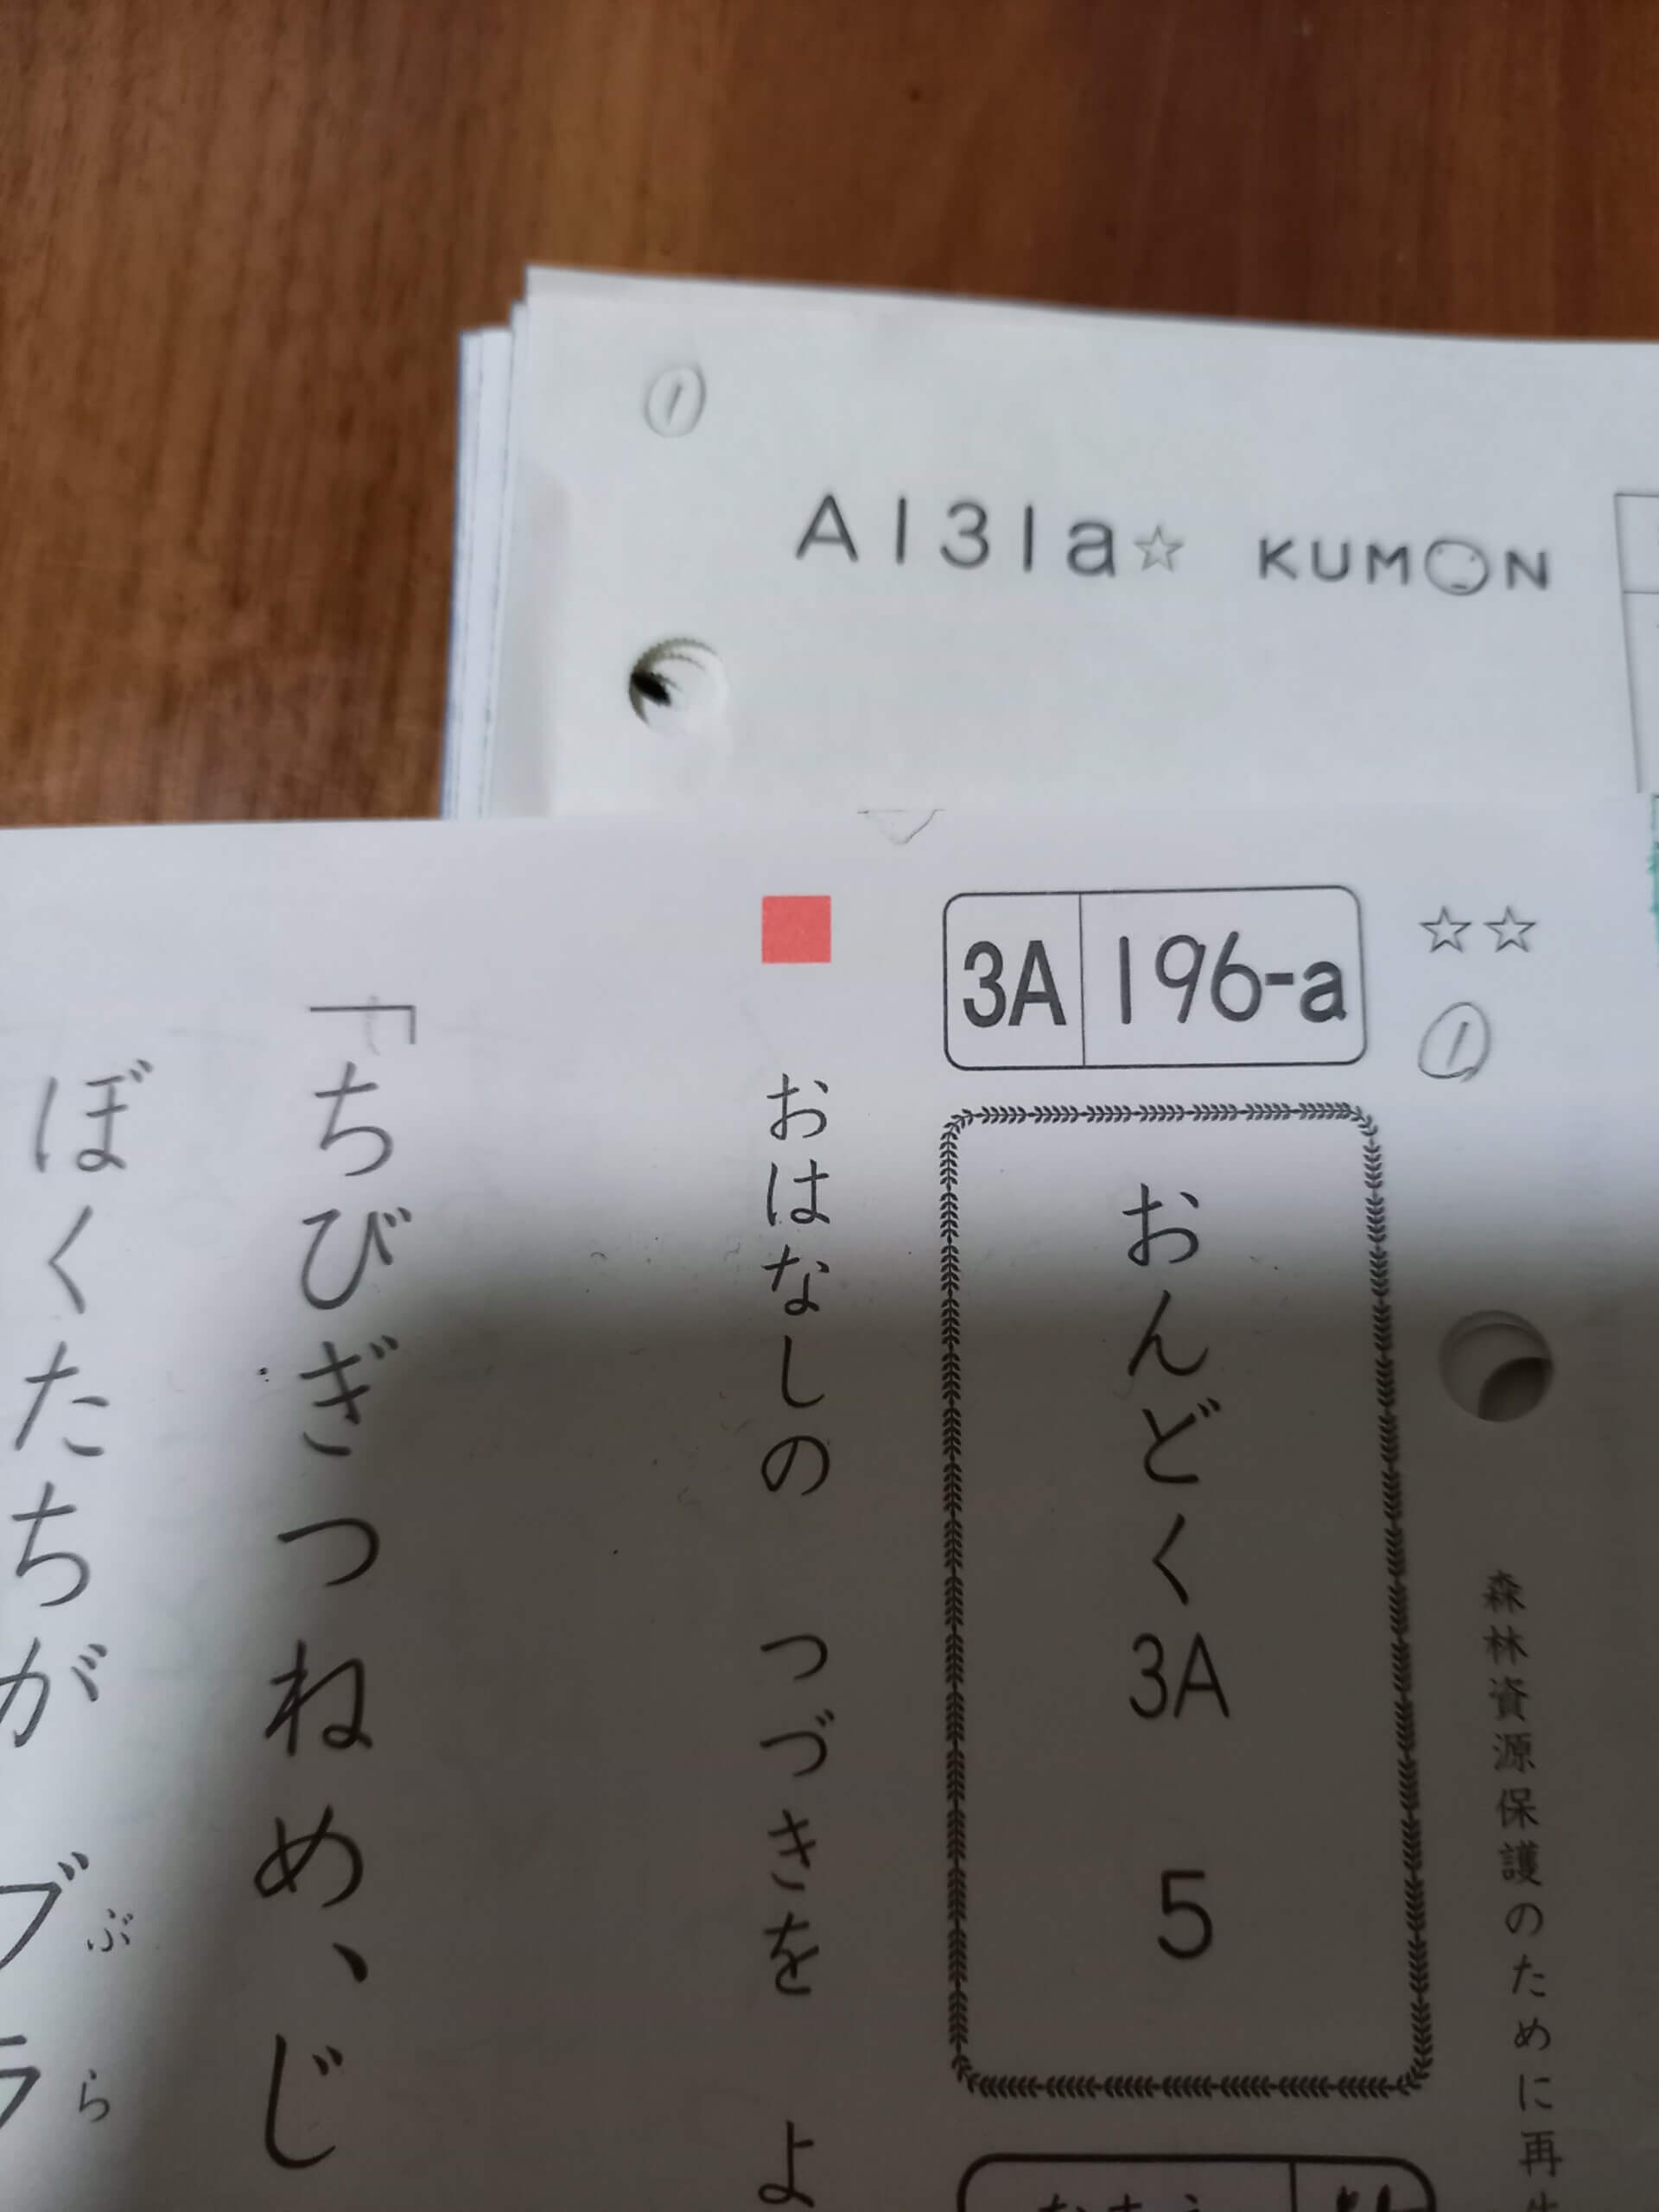 ①
A131a☆ KUMON
☆☆
①
3A 196-a
森林資源保護のために再
おんどく3A 5
おはなしの つづきを よ
「ちびぎつねめ、じ
ぼくたちが ブラ
ぶら